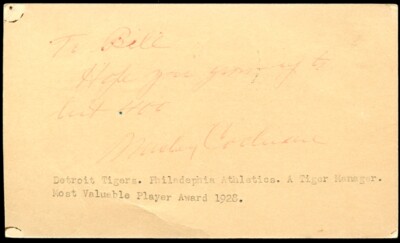 To Bill
Hope you grow up to
hit 400
Mickey Cochrane
Detroit Tigers. Philadephia Athletics. A Tiger Manager.
Most Valuable Player Award 1928.